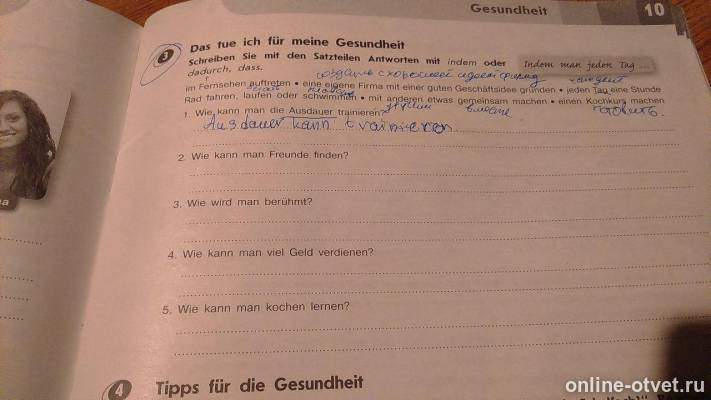 Gesundheit 10
3 Das tue ich für meine Gesundheit
Schreiben Sie mit den Satzteilen Antworten mit indem oder
dadurch, dass.
Indem man jeden Tag ...
im Fernsehen auftreten • eine eigene Firma mit einer guten Geschäftsidee gründen • jeden Tag eine Stunde
Rad fahren, laufen oder schwimmen • mit anderen etwas gemeinsam machen • einen Kochkurs machen
1. Wie kann man die Ausdauer trainieren?
Ausdauer kann trainieren
2. Wie kann man Freunde finden?
3. Wie wird man berühmt?
4. Wie kann man viel Geld verdienen?
5. Wie kann man kochen lernen?
4 Tipps für die Gesundheit
online-otvet.ru